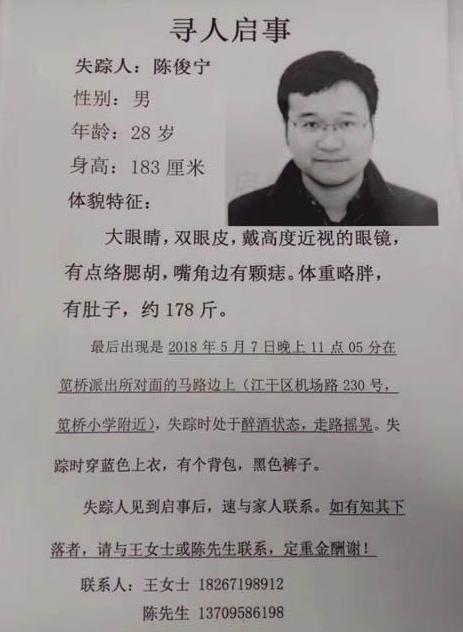 寻人启事
失踪人：陈俊宁
性别：男
年龄：28 岁
身高：183 厘米
体貌特征：
大眼睛，双眼皮，戴高度近视的眼镜，
有点络腮胡，嘴角边有颗痣。体重略胖，
有肚子，约 178 斤。
最后出现是 2018 年 5 月 7 日晚上 11 点 05 分在
笕桥派出所对面的马路边上（江干区机场路 230 号，
笕桥小学附近），失踪时处于醉酒状态，走路摇晃。失
踪时穿蓝色上衣，有个背包，黑色裤子。
失踪人见到启事后，速与家人联系。如有知其下
落者，请与王女士或陈先生联系，定重金酬谢！
联系人：王女士 18267198912
陈先生 13709586198